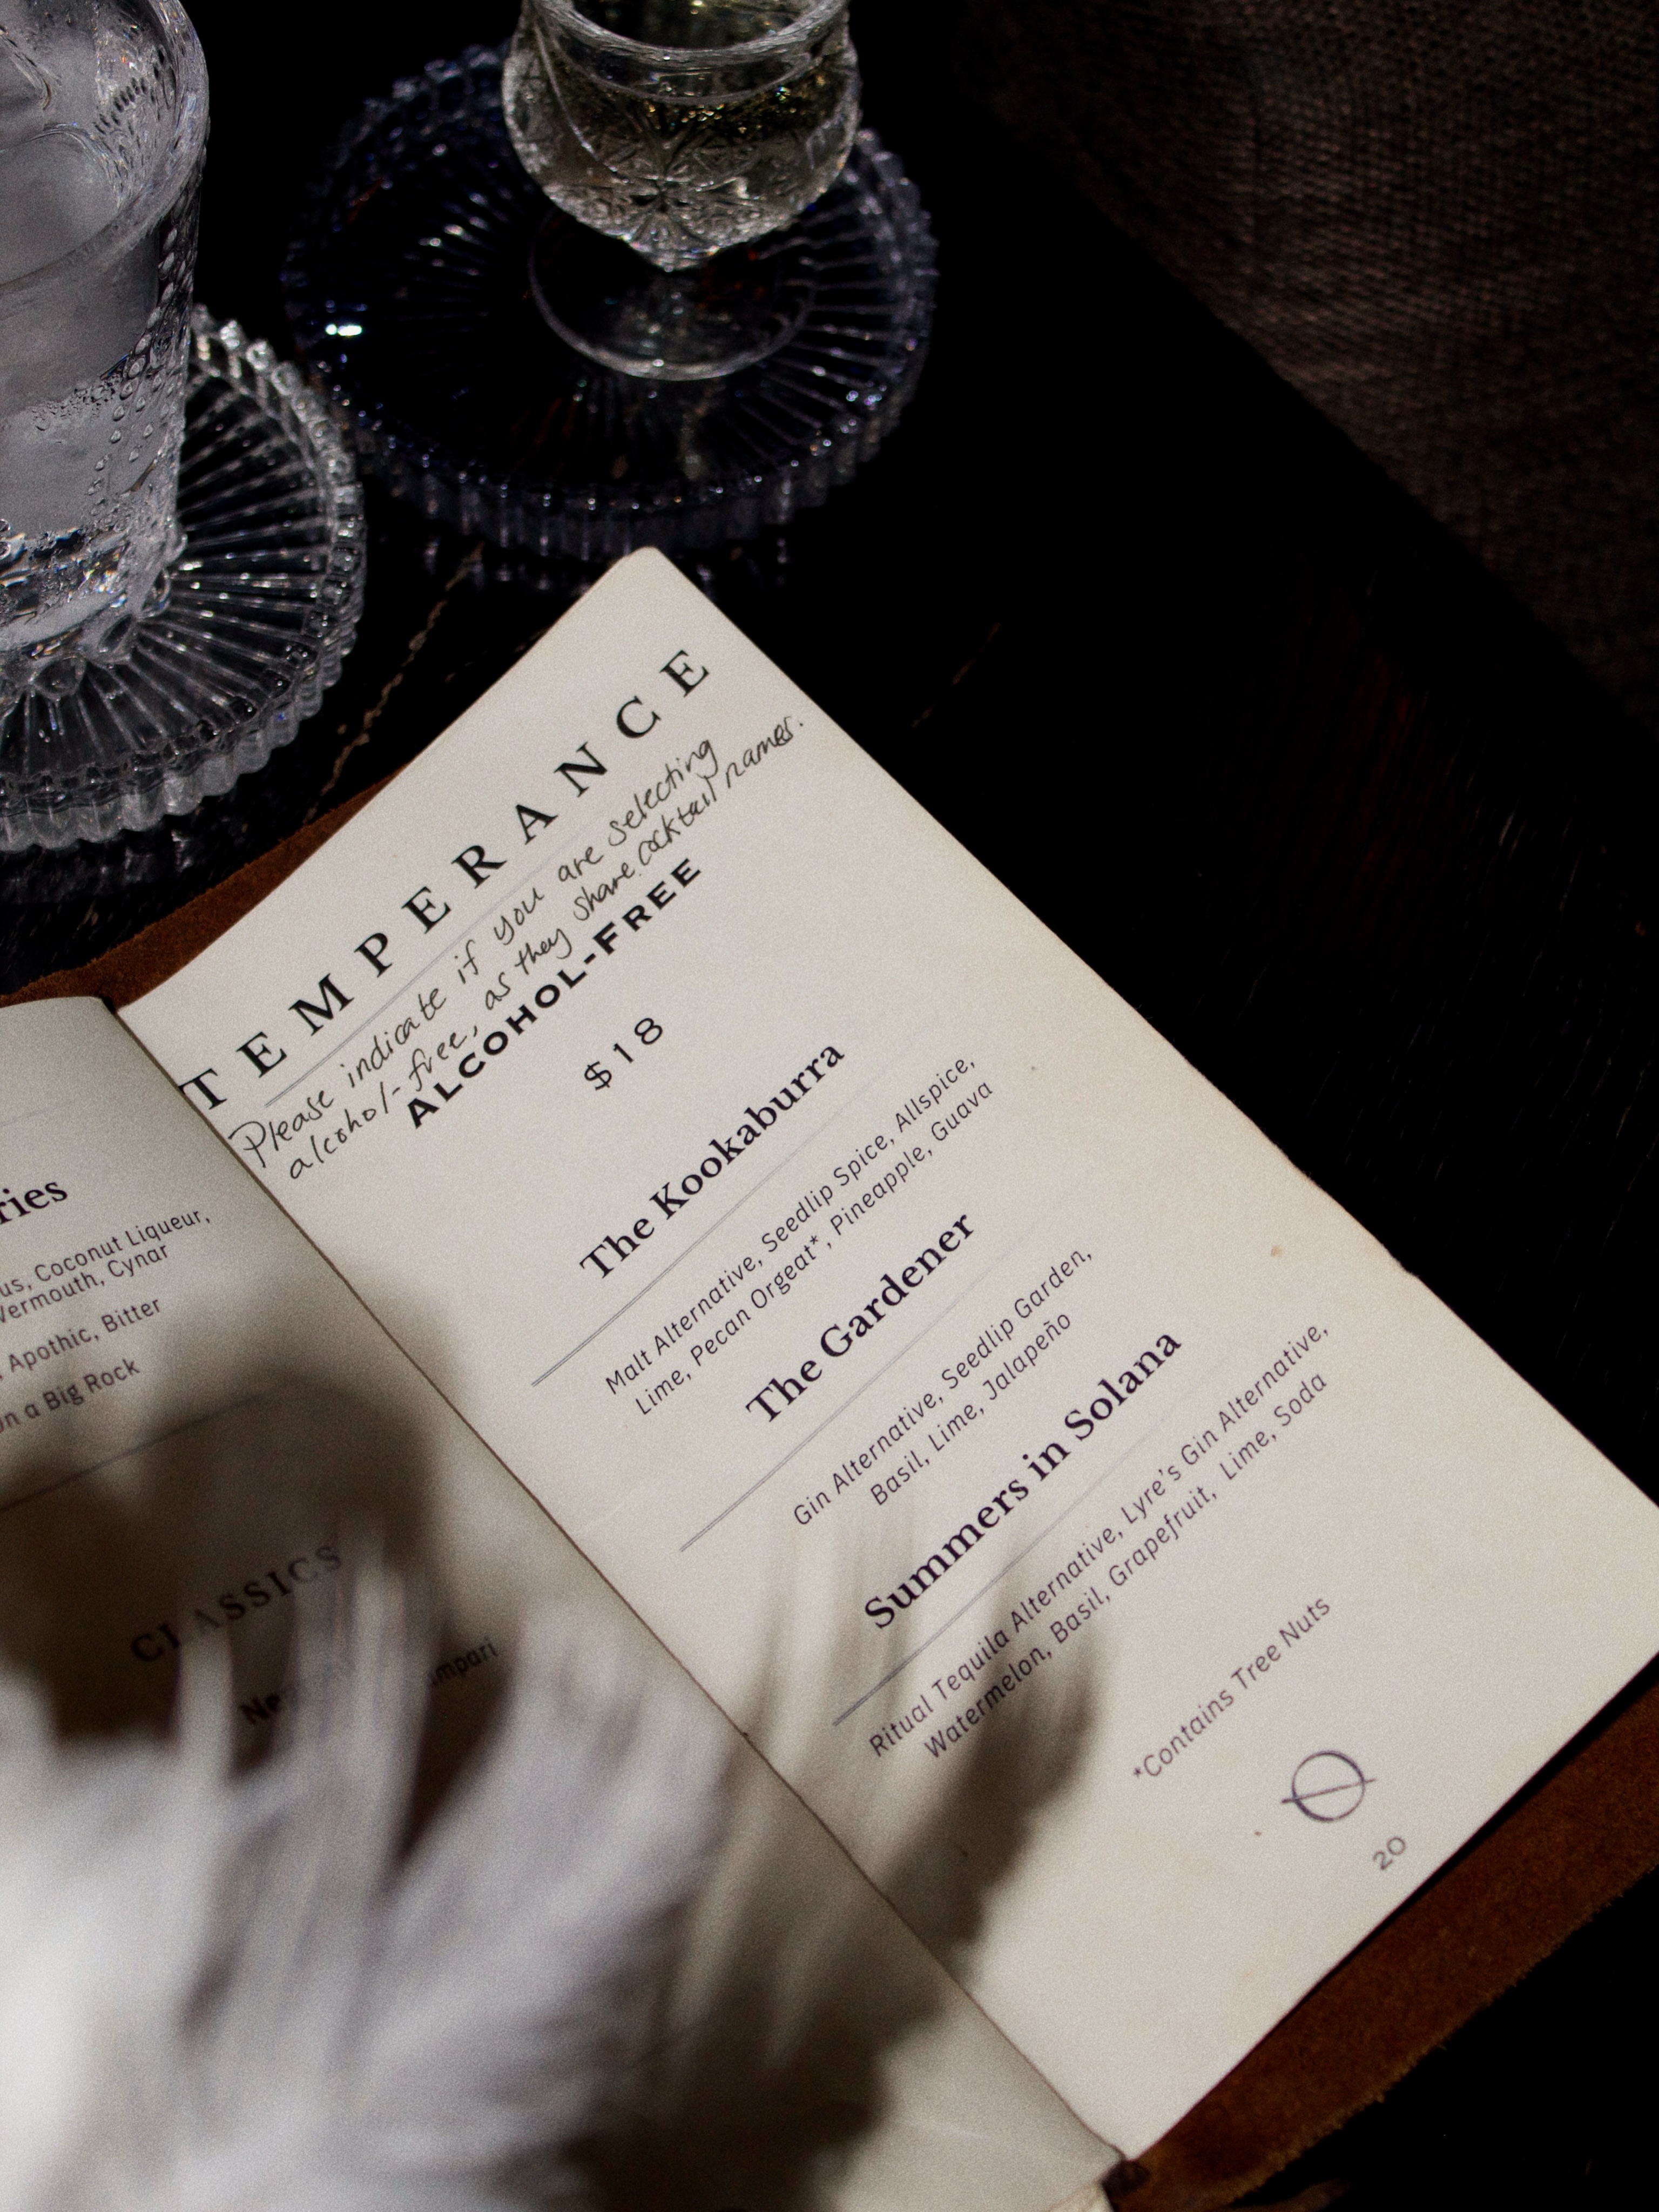 TEMPERANCE
Please indicate if you are selecting
alcohol-free, as they share cocktail names.
ALCOHOL-FREE
$18
The Kookaburra
Malt Alternative, Seedlip Spice, Allspice,
Lime, Pecan Orgeat*, Pineapple, Guava
The Gardener
Gin Alternative, Seedlip Garden,
Basil, Lime, Jalapeño
Summers in Solana
Ritual Tequila Alternative, Lyre's Gin Alternative,
Watermelon, Basil, Grapefruit, Lime, Soda
*Contains Tree Nuts
20
Coconut Liqueur,
Vermouth, Cynar
Apothic, Bitter
on a Big Rock
CLASSICS